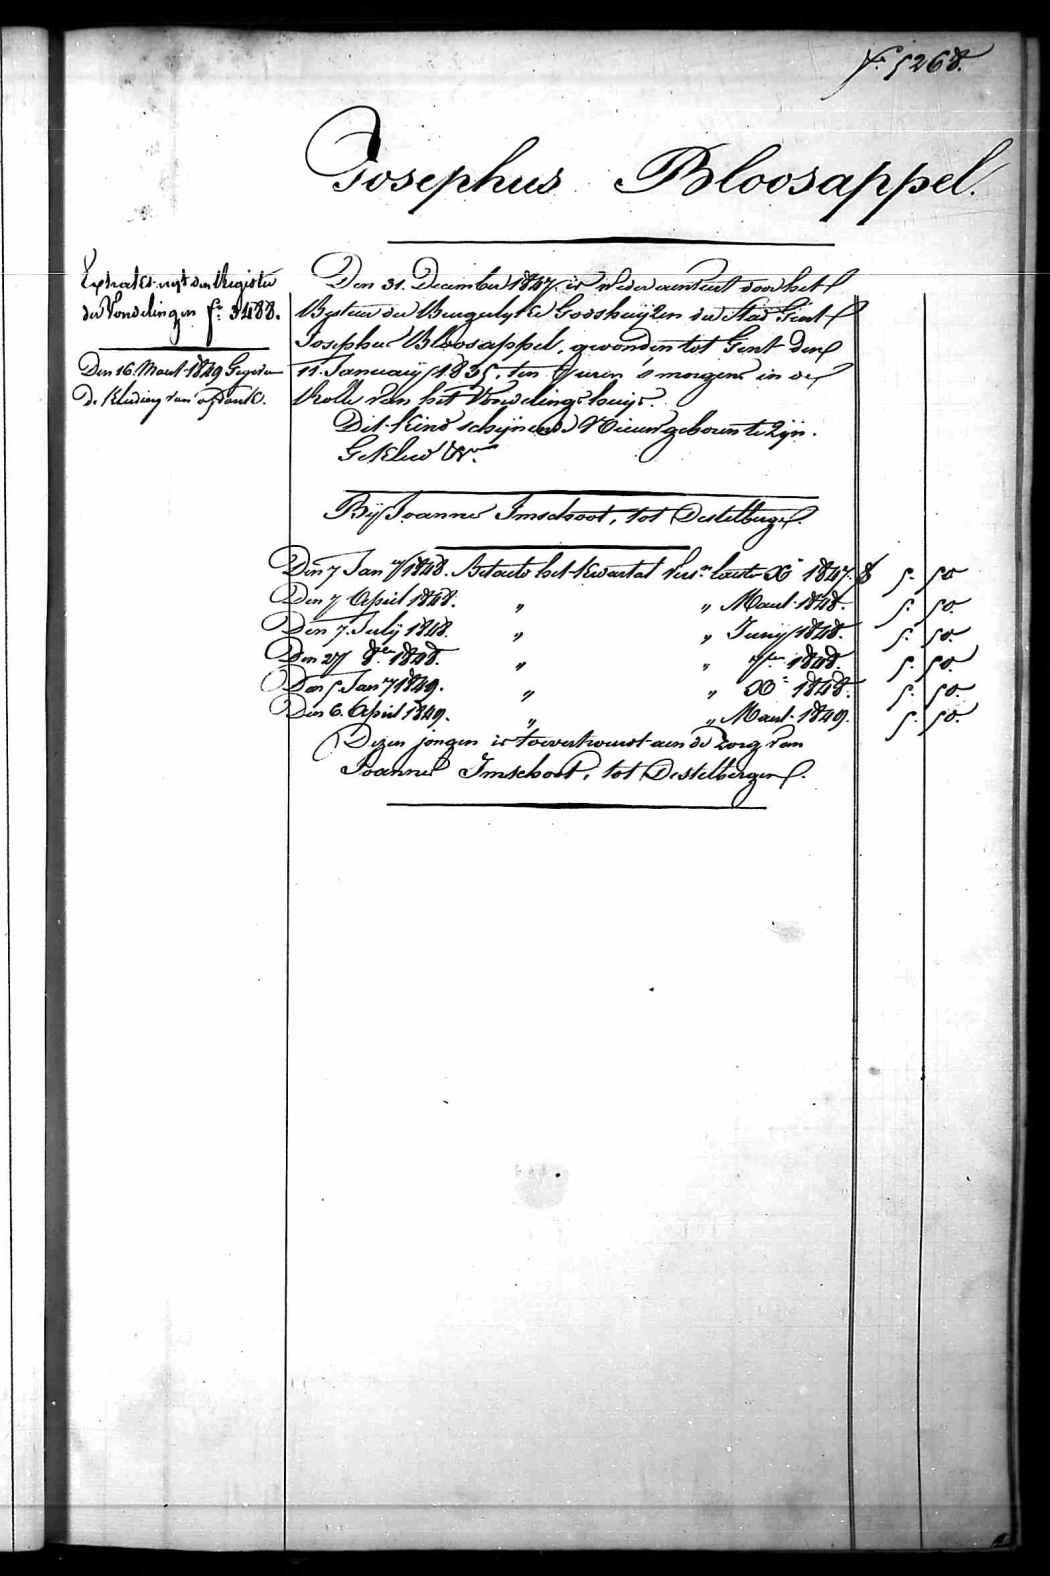 f.° 5268.
Josephus Bloosappel.
Extract es uijt den Register
der Vondelingen f.° 3488.
Den 16. Maert 1849 Gegeven
de Kleeding van
Den 31. December 1847. is weder aenveert door het
Bestier der Burgerlyke Godshuijzen der Stad Gent
Josephus Bloosappel, gevonden tot Gent den
11. January 1835, ten uren 's morgens in de
Rolle van het Vondelingshuijs.
Dit kind schijnende Nieuwgeboren te zijn.
Gekleed &.ª
Bij Joannes Imschoot, tot Destelbergen.
Den 7 Jan.y 1848. Betaeld het kwartal vers.n laeste X.e 1847. f 5. 50
Den 7 April 1848. " " Maert 1848. 5. 50.
Den 7. July 1848. " " Junij 1848. 5. 50.
Den 27 8.er 1848. " " 7.er 1848. 5. 50.
Den 5 Jan.y 1849. " " X.e 1848. 5. 50.
Den 6. April 1849. " " Maert 1849. 5. 50.
Dezen jongen is toevertrouwt aen de zorg van
Joannes Imschoot, tot Destelbergen.